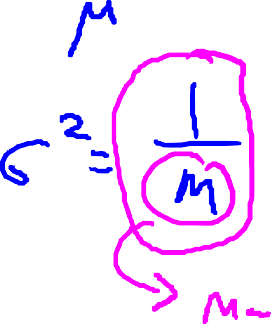 μ
σ² = 1/M
M-